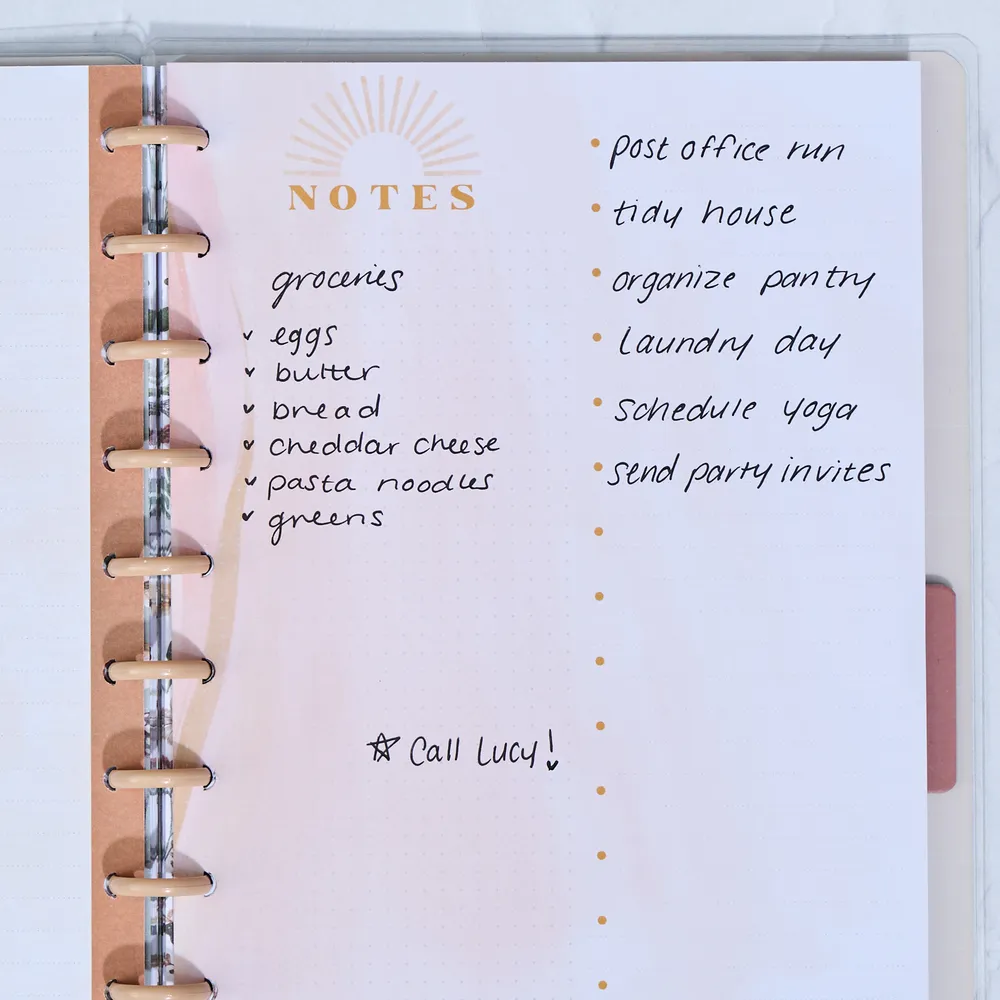 NOTES
groceries
eggs
butter
bread
cheddar cheese
pasta noodles
greens
Call Lucy!
post office run
tidy house
organize pantry
Laundry day
schedule yoga
send party invites